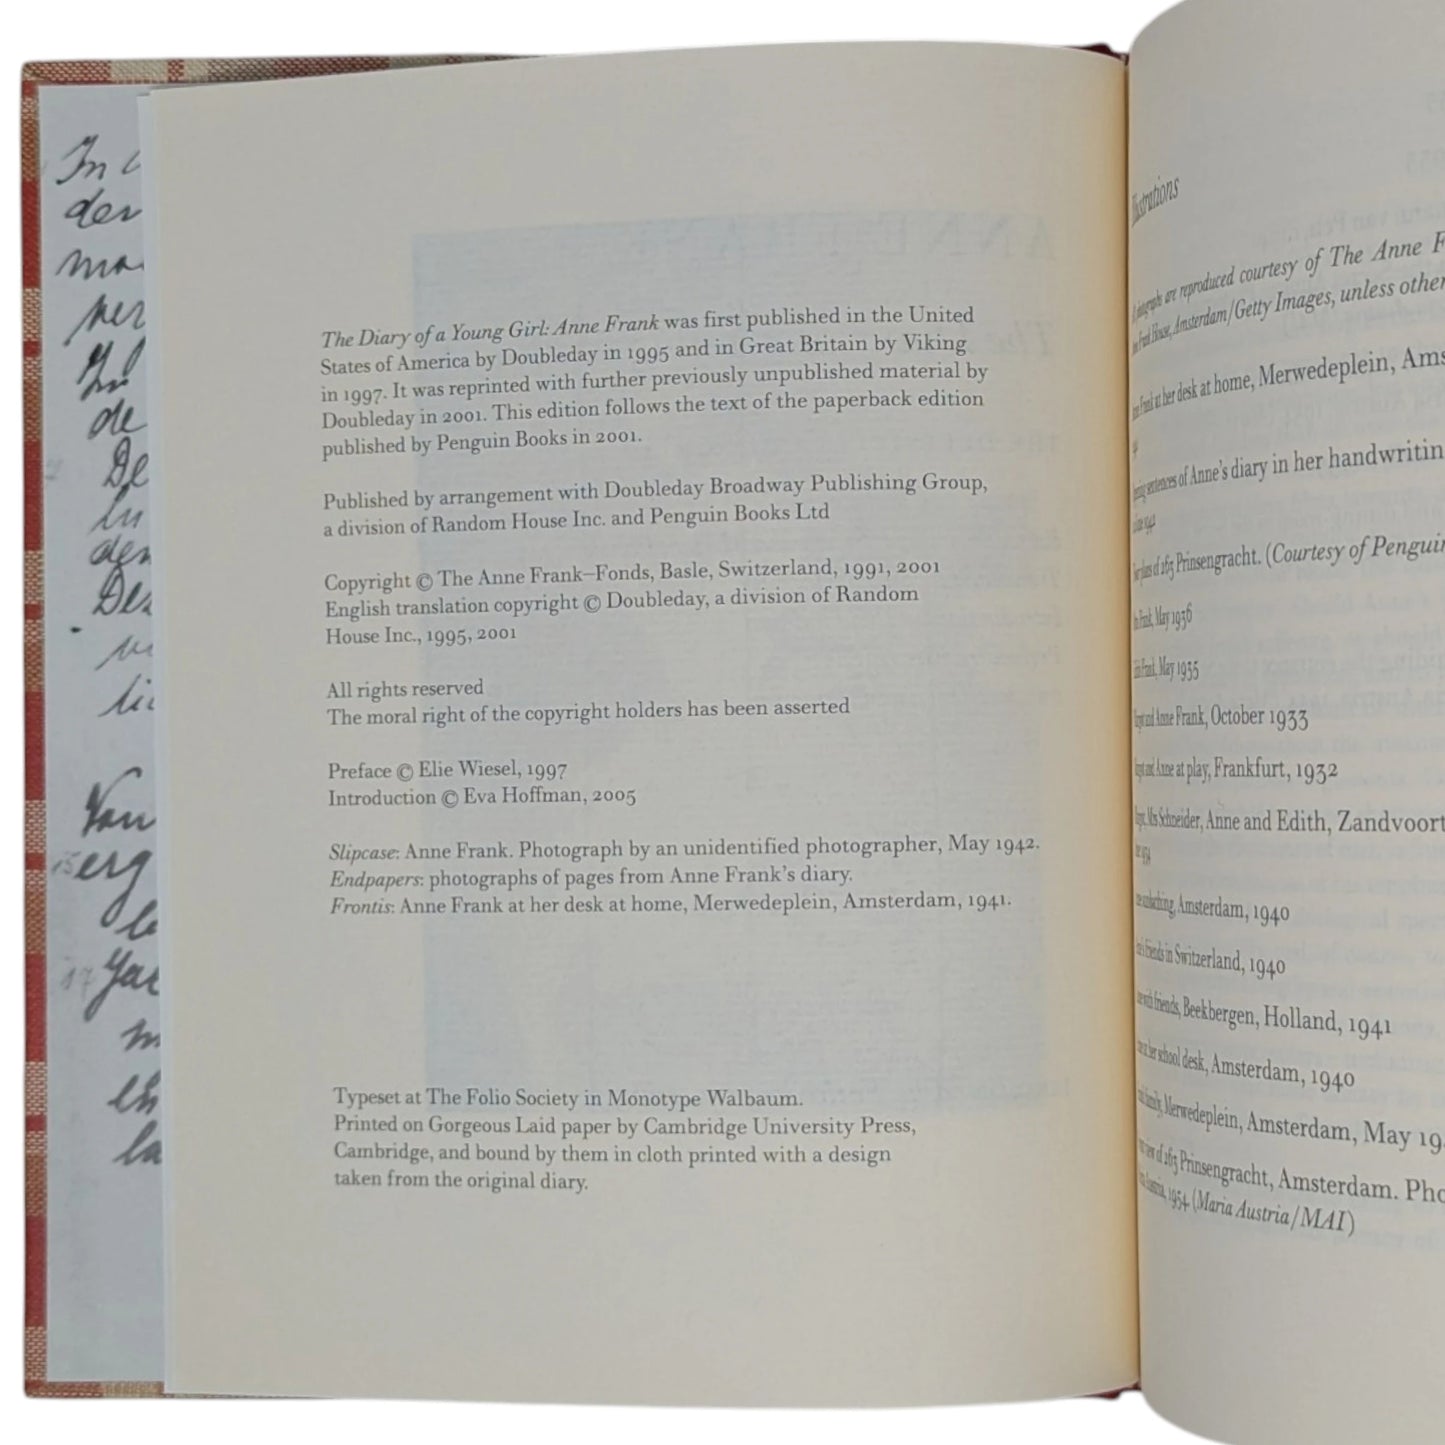 In
der
The Diary of a Young Girl: Anne Frank was first published in the United
States of America by Doubleday in 1995 and in Great Britain by Viking
in 1997. It was reprinted with further previously unpublished material by
Doubleday in 2001. This edition follows the text of the paperback edition
published by Penguin Books in 2001.
Published by arrangement with Doubleday Broadway Publishing Group,
a division of Random House Inc. and Penguin Books Ltd
Copyright © The Anne Frank–Fonds, Basle, Switzerland, 1991, 2001
English translation copyright © Doubleday, a division of Random
House Inc., 1995, 2001
All rights reserved
The moral right of the copyright holders has been asserted
Preface © Elie Wiesel, 1997
Introduction © Eva Hoffman, 2005
Slipcase: Anne Frank. Photograph by an unidentified photographer, May 1942.
Endpapers: photographs of pages from Anne Frank's diary.
Frontis: Anne Frank at her desk at home, Merwedeplein, Amsterdam, 1941.
Typeset at The Folio Society in Monotype Walbaum.
Printed on Gorgeous Laid paper by Cambridge University Press,
Cambridge, and bound by them in cloth printed with a design
taken from the original diary.
photographs are reproduced courtesy of The Anne F
Frank House, Amsterdam/Getty Images, unless other
Frank at her desk at home, Merwedeplein, Ams
sentences of Anne's diary in her handwritin
1942
plans of 263 Prinsengracht. (Courtesy of Penguin
Frank, May 1936
Frank, May 1935
and Anne Frank, October 1933
and Anne at play, Frankfurt, 1932
Mrs Schneider, Anne and Edith, Zandvoort
1934
sunbathing, Amsterdam, 1940
friends in Switzerland, 1940
with friends, Beekbergen, Holland, 1941
at her school desk, Amsterdam, 1940
family, Merwedeplein, Amsterdam, May 19
view of 263 Prinsengracht, Amsterdam. Pho
Austria, 1954 (Maria Austria/MAI)